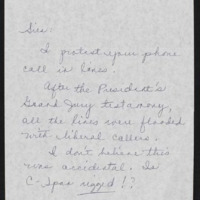 Sirs:
I protest your phone
call in lines.
After the President's
Grand Jury testamony,
all the lines were flooded
with liberal callers.
I don't believe this
was accidental. Is
C-Span rigged!?